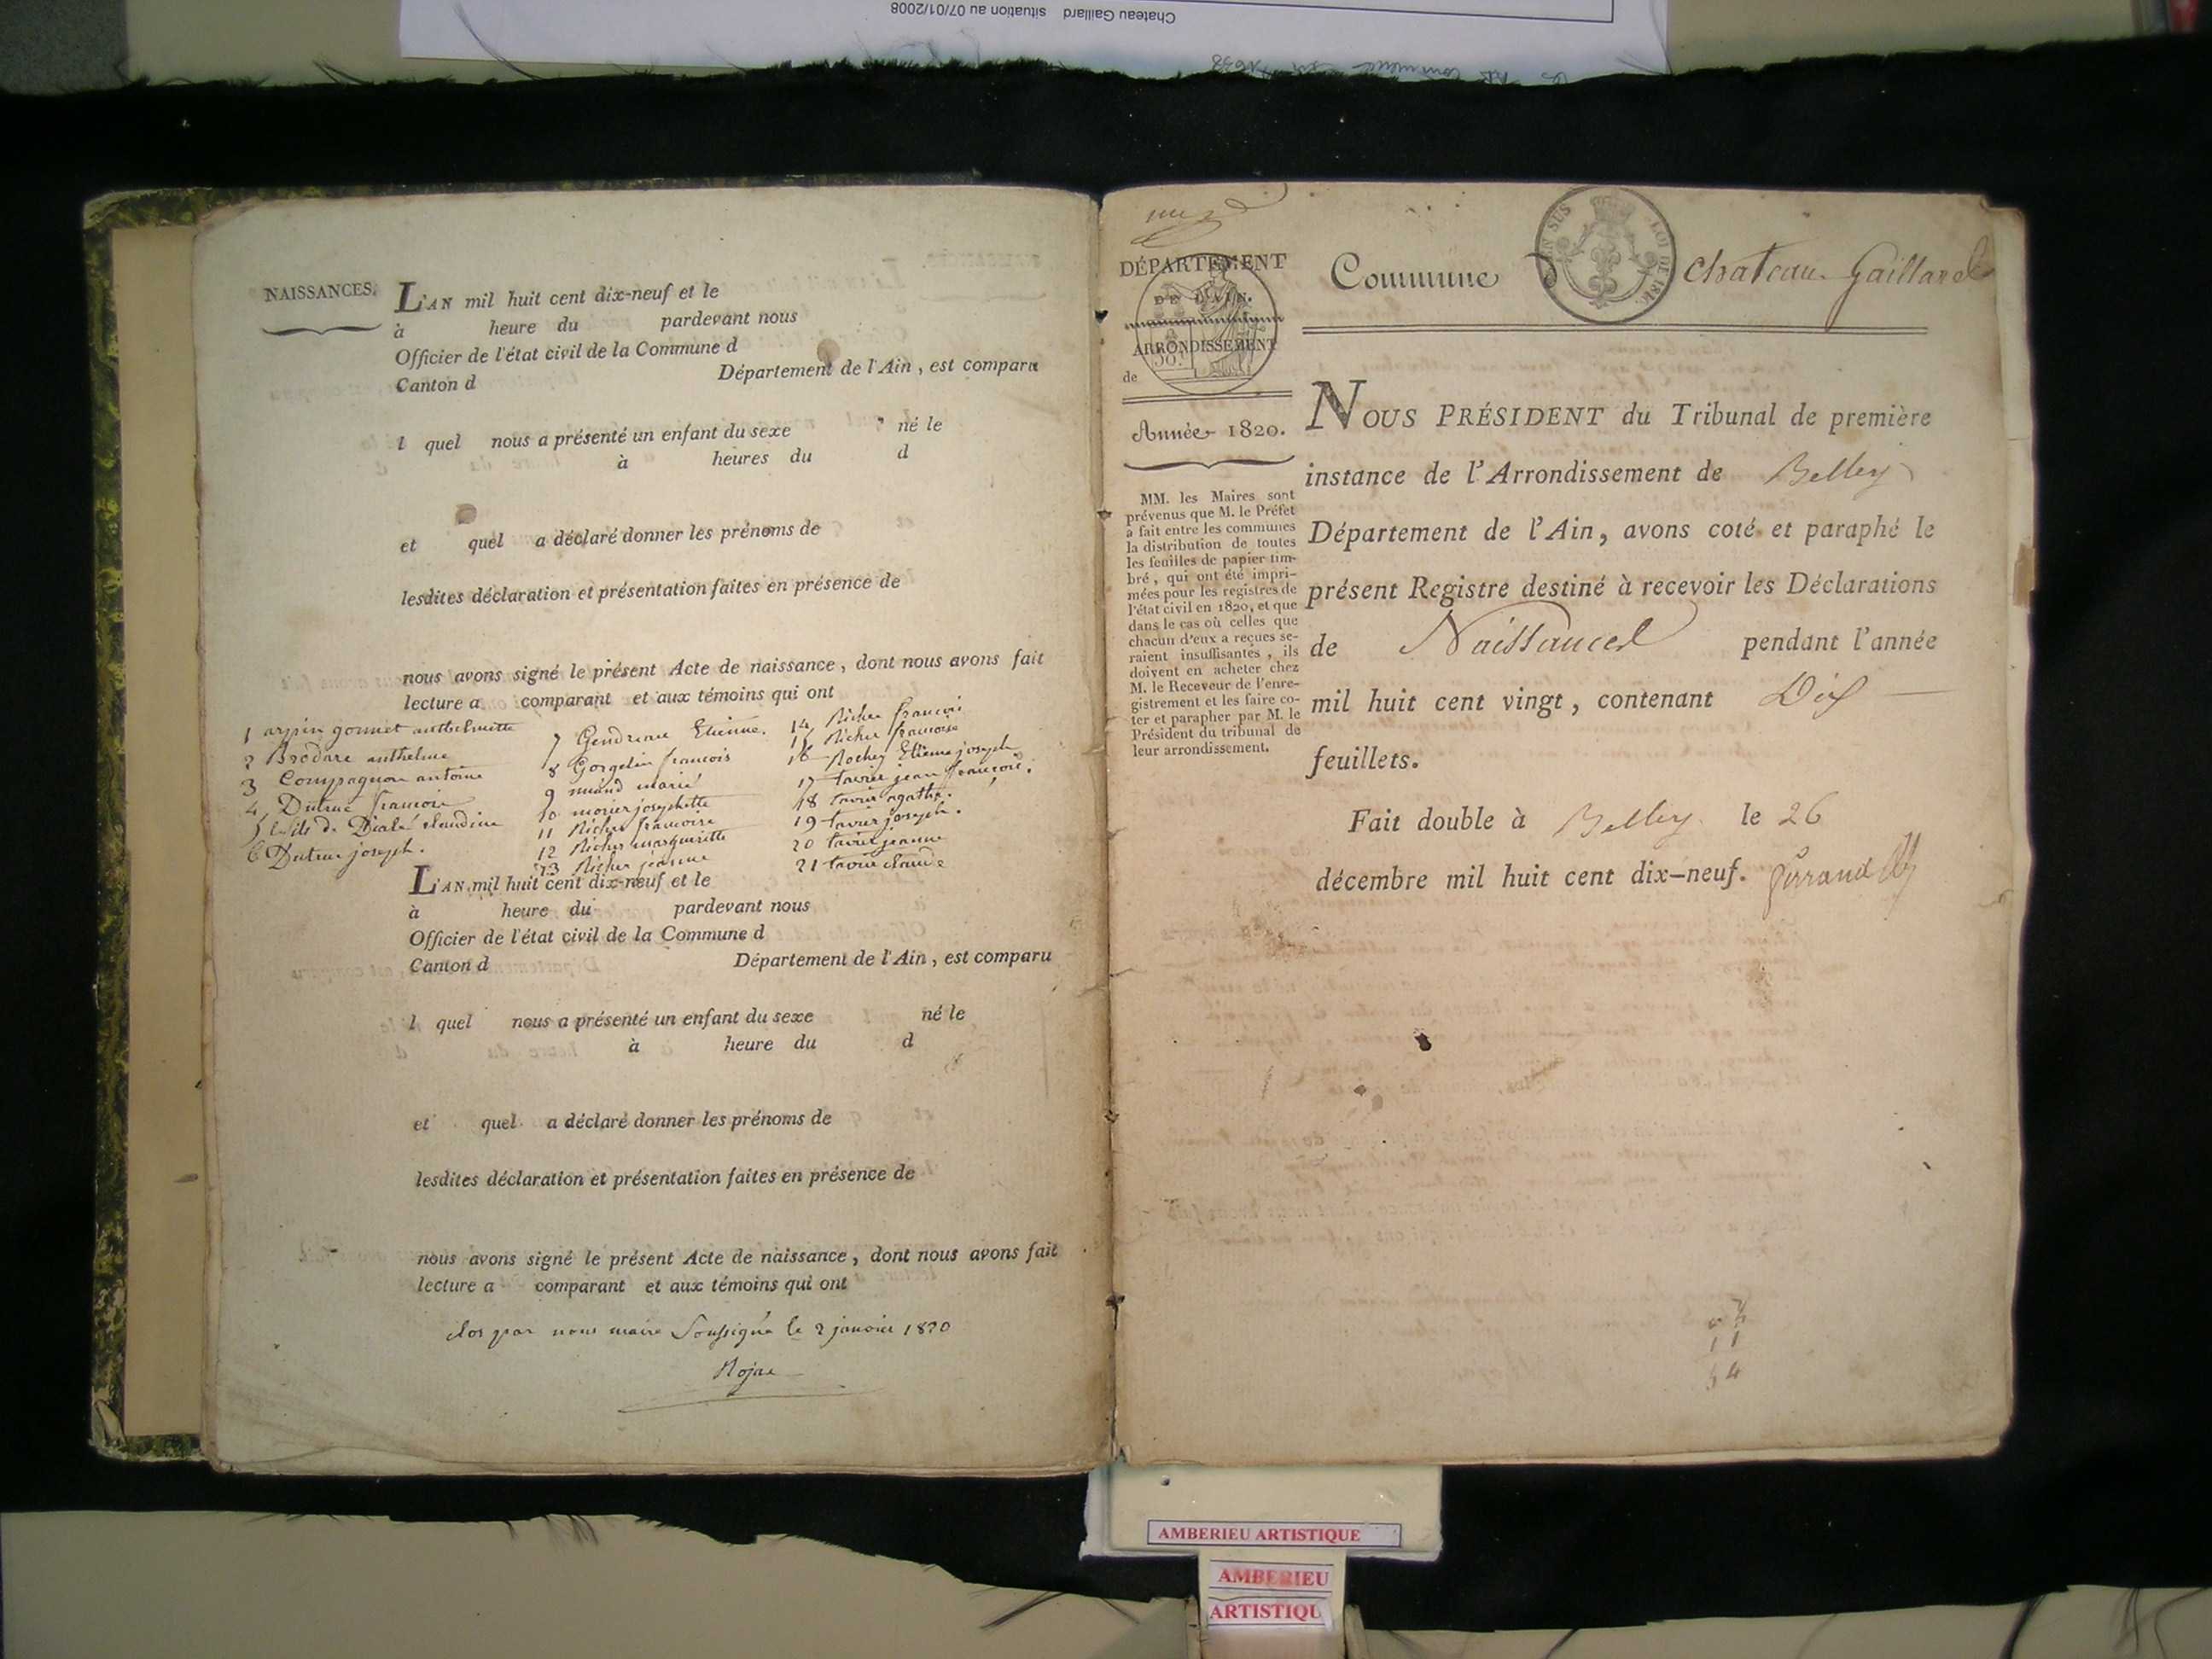 Chateau Gaillard situation au 07/01/2008
NAISSANCES.
L'AN mil huit cent dix-neuf et le
à heure du pardevant nous
Officier de l'état civil de la Commune d
Canton d Département de l'Ain, est comparu
l quel nous a présenté un enfant du sexe né le
à heures du d
et quel a déclaré donner les prénoms de
lesdites déclaration et présentation faites en présence de
nous avons signé le présent Acte de naissance, dont nous avons fait
lecture a comparant et aux témoins qui ont
1 arpin gonnet anthelmette
2 Brodare anthelme
3 Compagnon antoine
4 Dutrue francois
5 claudine
6 Dutrue joseph.
7 Gendreau Etienne.
8 Gorgelin francois
9 marie
10 morier josephette
11 Richer francoise
12 Richer margueritte
13 Richer jeanne
14 Richer francois
15 Richer francoise
16 Rochey Etienne joseph
17 tavier jean francois.
18 tavier agathe.
19 tavier joseph.
20 tavier jeanne
21 tavier claude
L'AN mil huit cent dix-neuf et le
à heure du pardevant nous
Officier de l'état civil de la Commune d
Canton d Département de l'Ain, est comparu
l quel nous a présenté un enfant du sexe né le
à heure du d
et quel a déclaré donner les prénoms de
lesdites déclaration et présentation faites en présence de
nous avons signé le présent Acte de naissance, dont nous avons fait
lecture a comparant et aux témoins qui ont
clos par nous maire Soussigné le 2 janvier 1820
DÉPARTEMENT
DE L'AIN.
ARRONDISSEMENT
de
Année 1820.
MM. les Maires sont
prévenus que M. le Préfet
a fait entre les communes
la distribution de toutes
les feuilles de papier tim-
bré, qui ont été impri-
mées pour les registres de
l'état civil en 1820, et que
dans le cas où celles que
chacun d'eux a reçues se-
raient insuffisantes, ils
doivent en acheter chez
M. le Receveur de l'enre-
gistrement et les faire co-
ter et parapher par M. le
Président du tribunal de
leur arrondissement.
Commune d chateau Gaillard
NOUS PRÉSIDENT du Tribunal de première
instance de l'Arrondissement de Belley
Département de l'Ain, avons coté et paraphé le
présent Registre destiné à recevoir les Déclarations
de Naissances pendant l'année
mil huit cent vingt, contenant Dix
feuillets.
Fait double à Belley le 26
décembre mil huit cent dix-neuf.
11
54
AMBERIEU ARTISTIQUE
AMBERIEU
ARTISTIQU